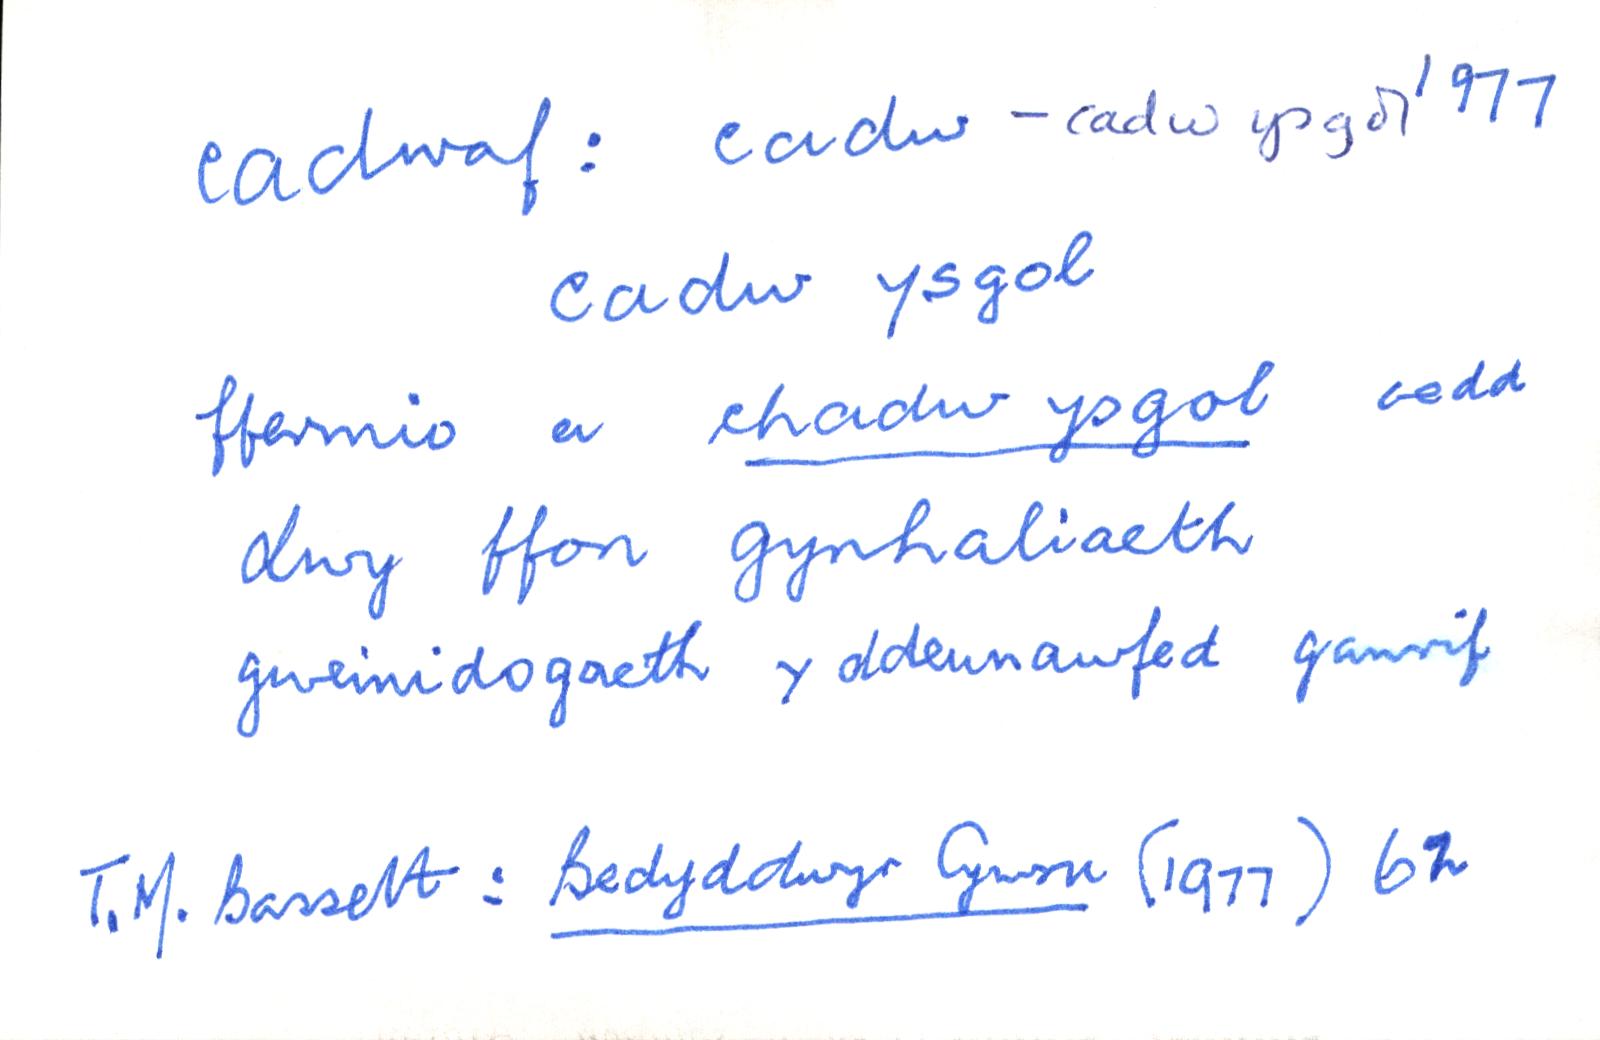 cadwaf: cadw – cadw ysgol 1977
cadw ysgol
ffermio a chadw ysgol oedd
dwy ffon gynhaliaeth
gweinidogaeth y ddeunawfed ganrif
T.M. Bassett: Bedyddwyr Cymru (1977) 62